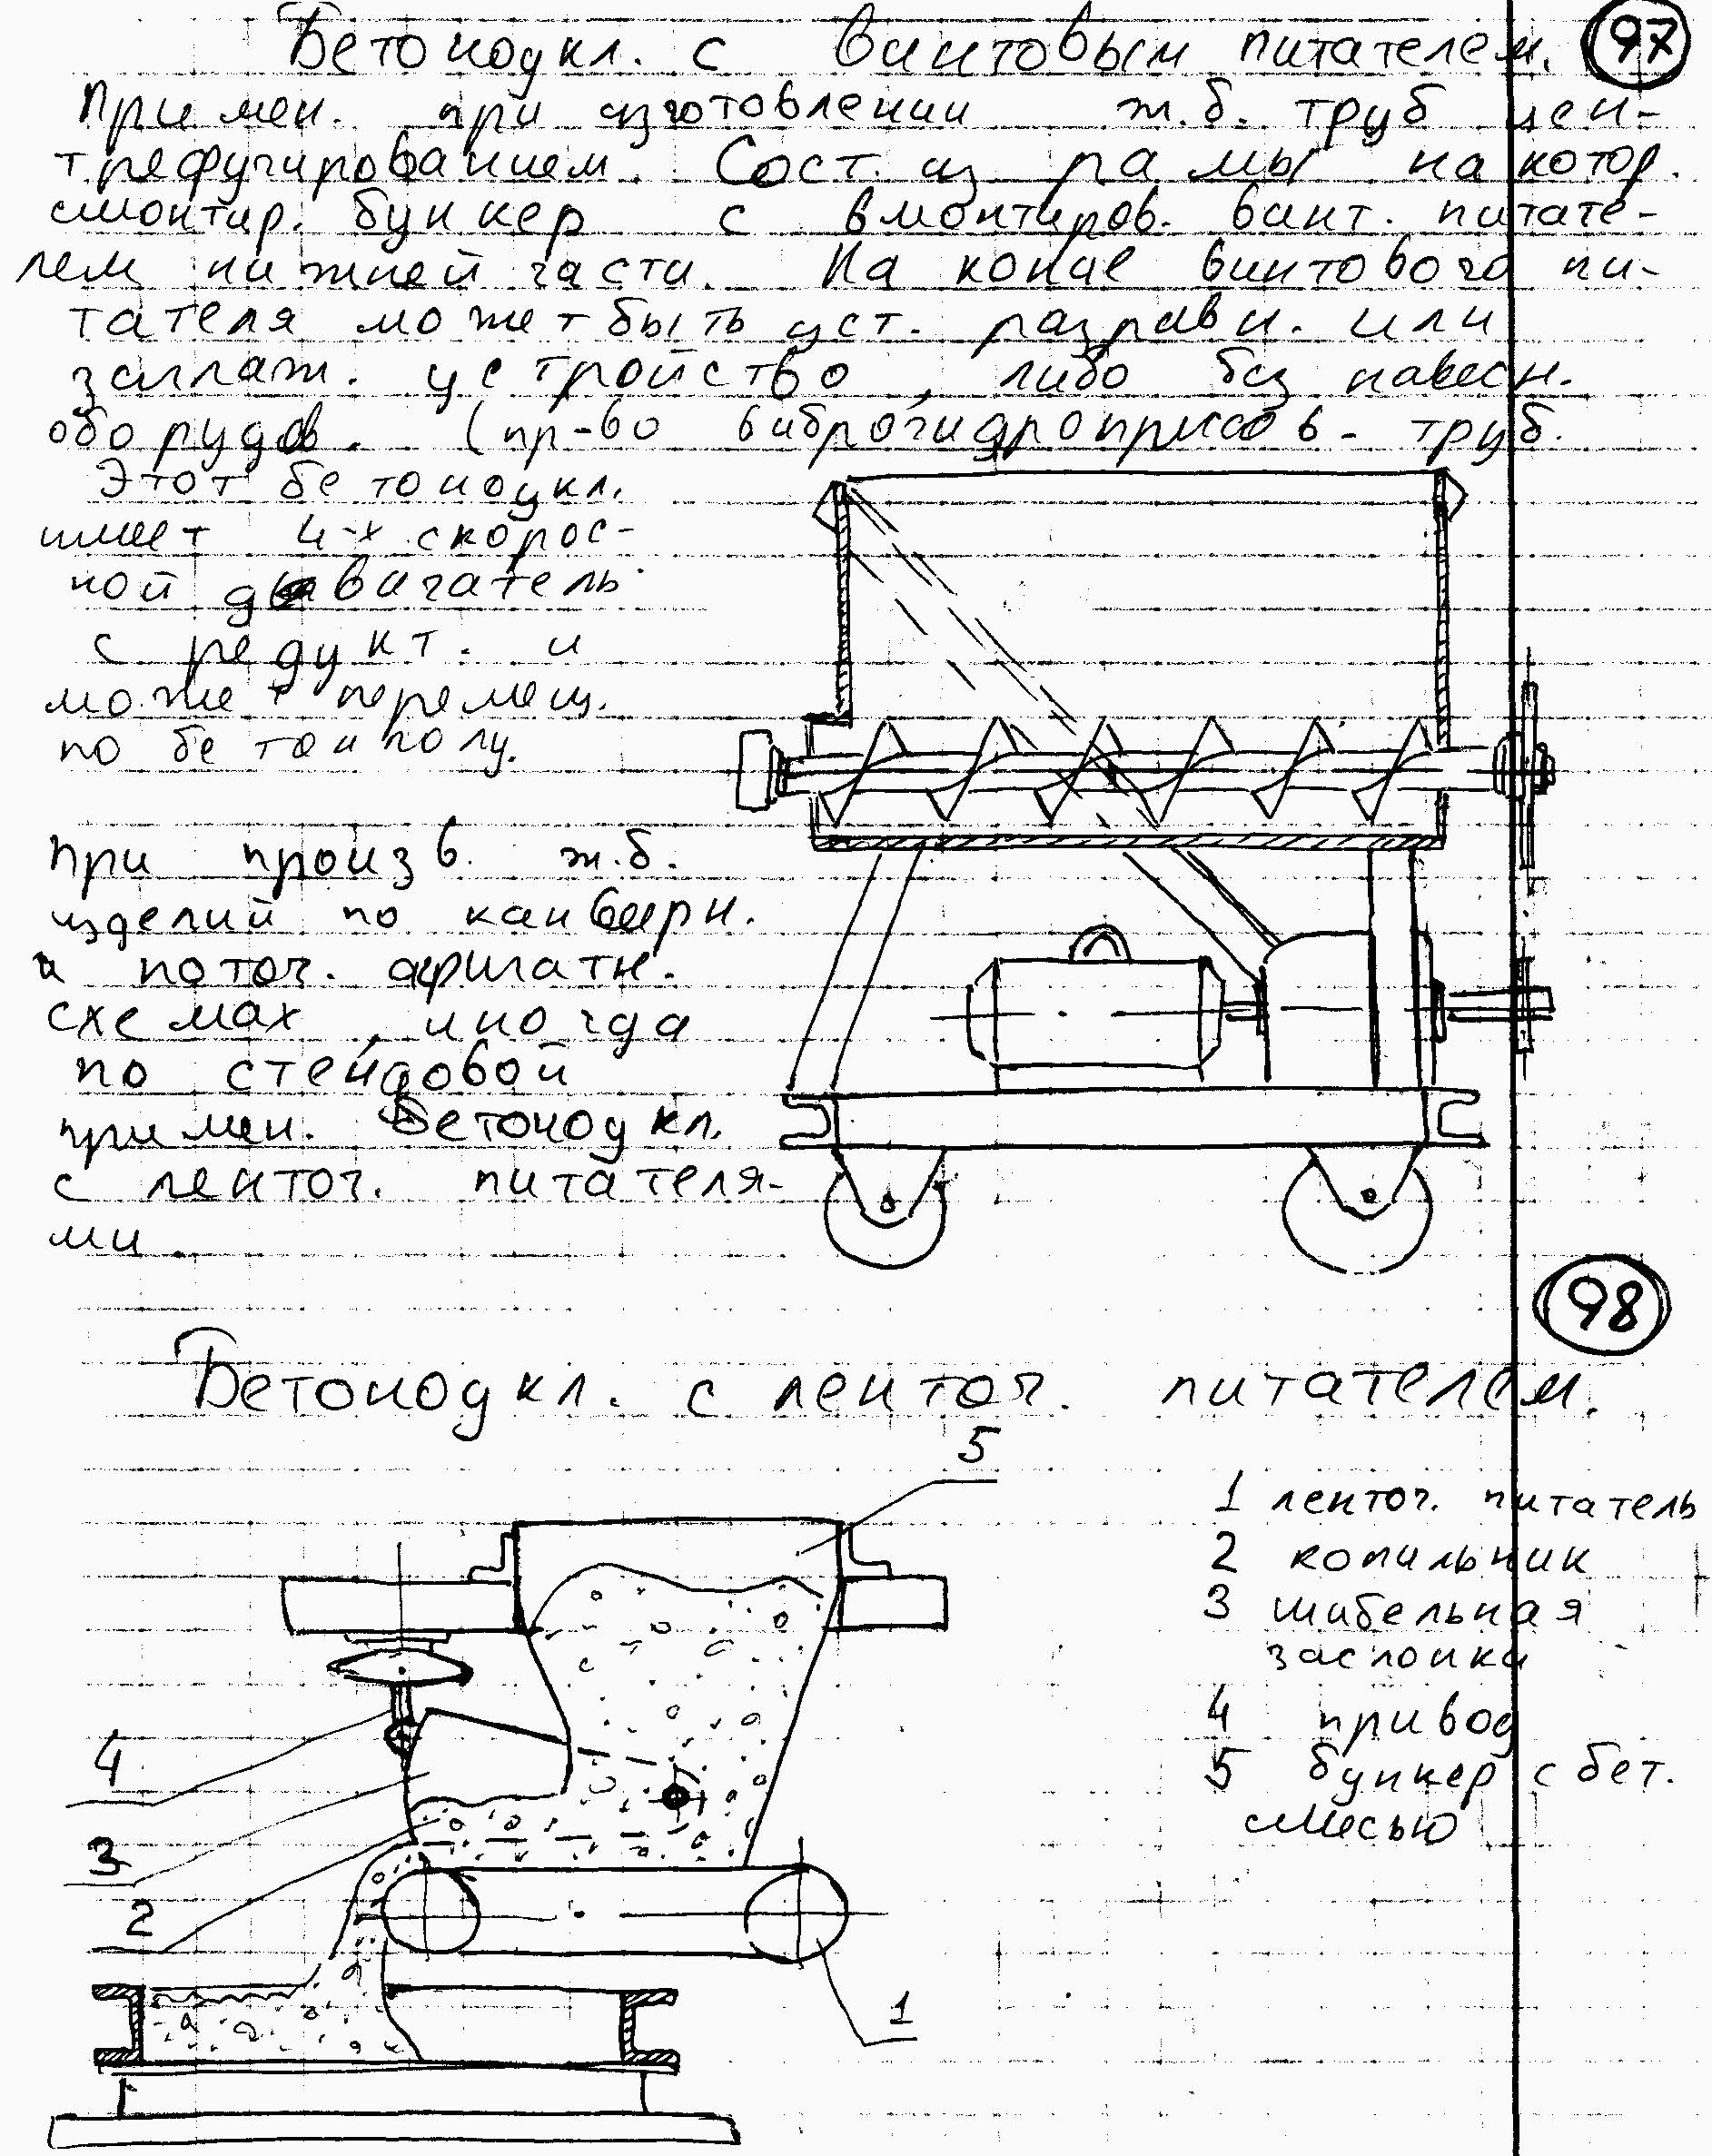 Бетоноукл. с винтовым питателем. 97
Примен. при изготовлении ж.б. труб цен-
трефугированием. Сост. из рамы на котор.
смонтир. бункер с вмонтиров. винт. питате-
лем нижней части. На конце винтового пи-
тателя может быть уст. разравн. или
заглаж. устройство, либо без навесн.
оборудов. (пр-во виброгидропрессов. труб.
Этот бетоноукл.
имеет 4-х скорос-
ной двигатель
с редукт. и
может перемещ.
по бетон полу.
При произв. ж.б.
изделий по конвеерн.
и поточ. агрегатн.
схемах, иногда
по стендовой
примен. бетоноукл.
с ленточ. питателя-
ми.
98
Бетоноукл. с ленточ. питателем.
5
1 ленточ. питатель
2 копильник
3 шибельная
заслонка
4 привод
5 бункер с бет.
смесью
4
3
2
1